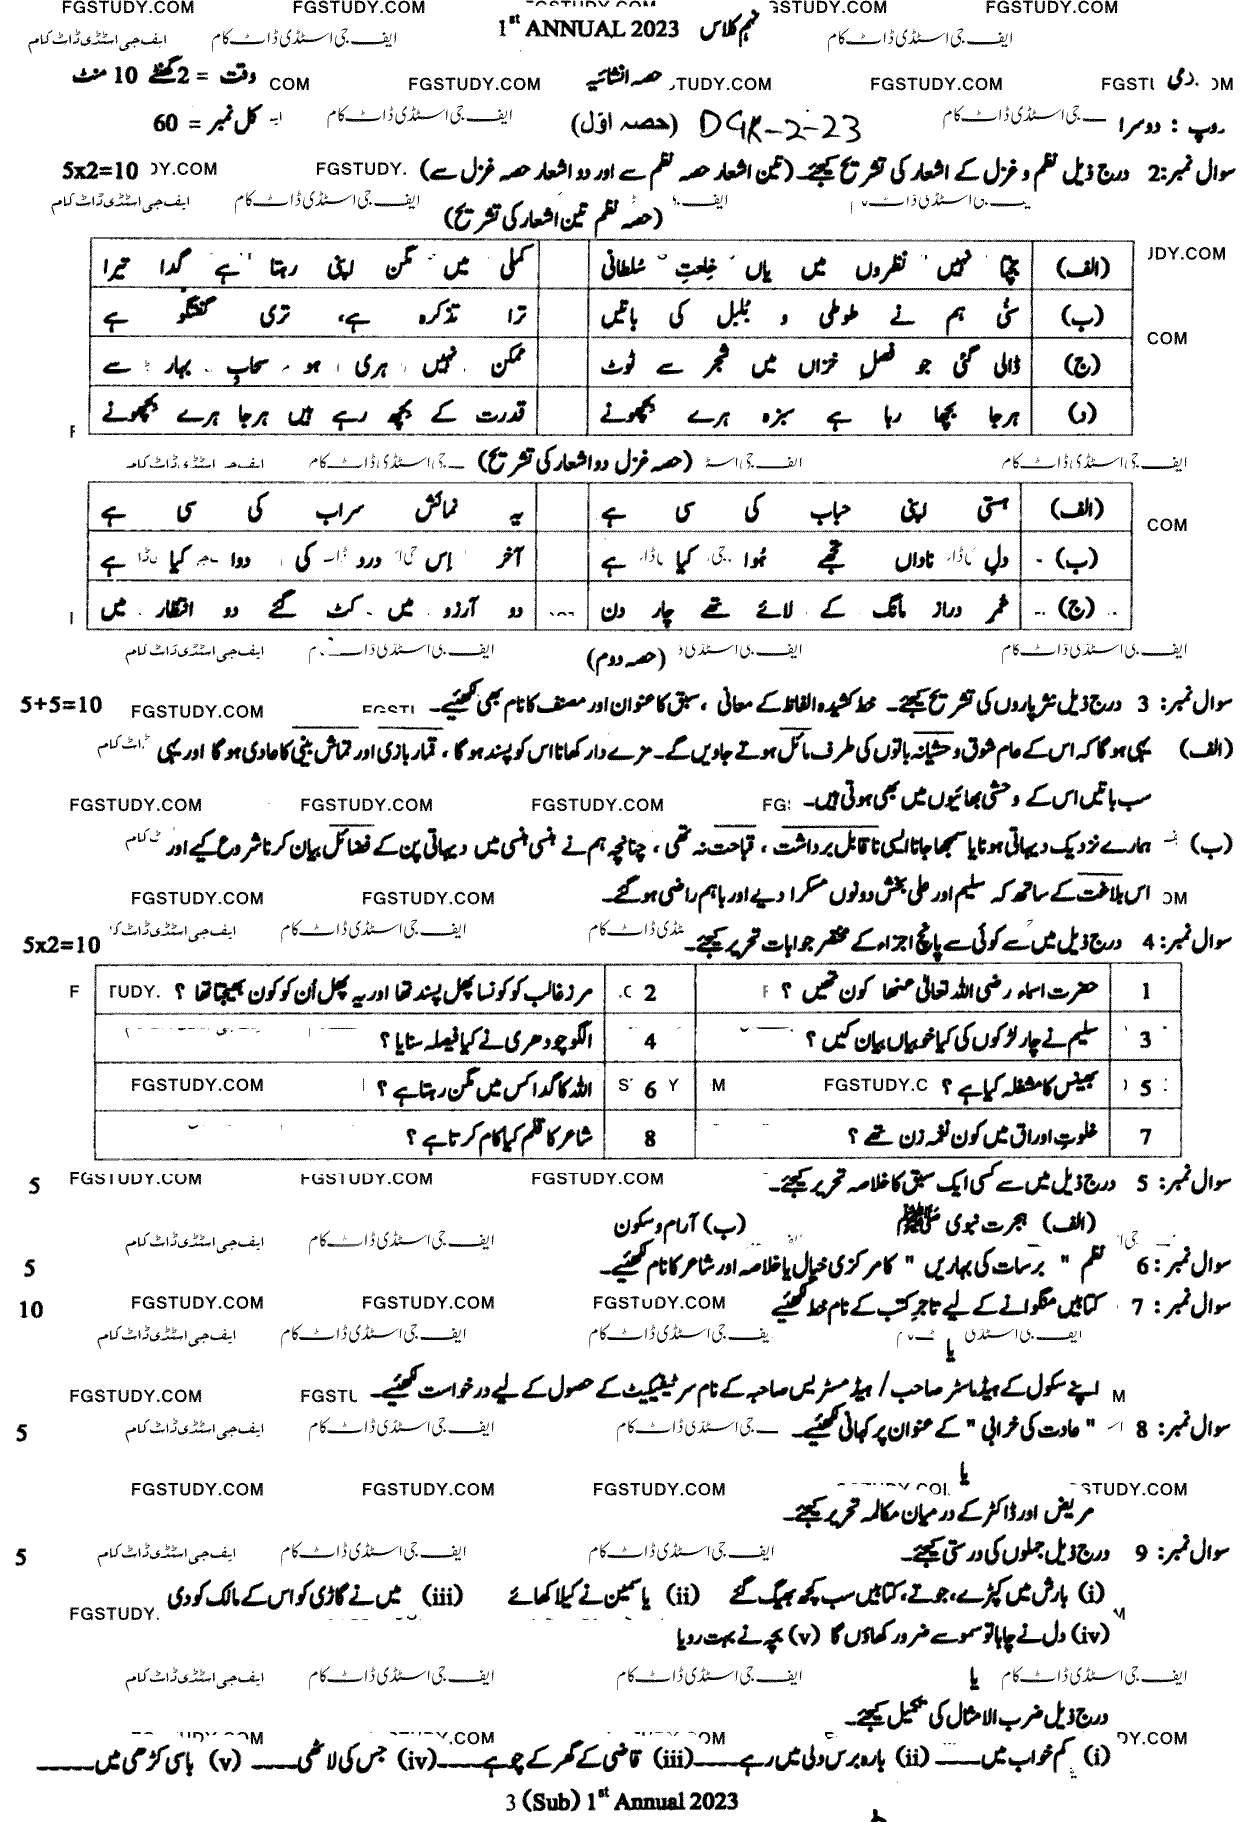 FGSTUDY.COM FGSTUDY.COM FGSTUDY.COM FGSTUDY.COM
1st ANNUAL 2023 نہم کلاس
ایف جی اسٹڈی ڈاٹ کام ایف جی اسٹڈی ڈاٹ کام ایف جی اسٹڈی ڈاٹ کام
حصہ انشائیہ وقت = 2 گھنٹے 10 منٹ
COM FGSTUDY.COM TUDY.COM FGSTUDY.COM
دوسرا (حصہ اوّل) DGK-2-23 کل نمبر = 60
سوال نمبر:2 درج ذیل نظم و غزل کے اشعار کی تشریح کیجئے۔ (تین اشعار حصہ نظم سے اور دو اشعار حصہ غزل سے) 5x2=10
(حصہ نظم تین اشعار کی تشریح)
(الف) جچتا نہیں نظروں میں یاں خلعتِ سُلطانی کملی میں مگن اپنی رہتا ہے گدا تیرا
(ب) سنی ہم نے طوطی و بُلبل کی باتیں ترا تذکرہ ہے، تری گفتگو ہے
(ج) ڈالی گئی جو فصلِ خزاں میں شجر سے ٹوٹ ممکن نہیں ہری ہو سحابِ بہار سے
(د) ہرجا بچھا رہا ہے سبزہ ہرے بچھونے قدرت کے بچھ رہے ہیں ہرجا ہرے بچھونے
(حصہ غزل دو اشعار کی تشریح)
(الف) ہستی اپنی حباب کی سی ہے یہ نمائش سراب کی سی ہے
(ب) دلِ ناداں تجھے ہُوا کیا ہے آخر اِس درد کی دوا کیا ہے
(ج) عمرِ دراز مانگ کے لائے تھے چار دن دو آرزو میں کٹ گئے دو انتظار میں
(حصہ دوم)
سوال نمبر: 3 درج ذیل نثر پاروں کی تشریح کیجئے۔ خط کشیدہ الفاظ کے معانی، سبق کا عنوان اور مصنف کا نام بھی لکھئیے۔ 5+5=10
(الف) یہی ہو گا کہ اس کے عام شوق وحشیانہ باتوں کی طرف مائل ہوتے جاویں گے۔ مزے دار کھانا اس کو پسند ہو گا، قمار بازی اور تماش بینی کا عادی ہو گا اور یہی
سب باتیں اس کے وحشی بھائیوں میں بھی ہوتی ہیں۔
(ب) ہمارے نزدیک دیہاتی ہونا یا سمجھا جانا ایسی ناقابل برداشت، قباحت نہ تھی، چنانچہ ہم نے ہنسی ہنسی میں دیہاتی پن کے فضائل بیان کرنا شروع کیے اور
اس بلاغت کے ساتھ کہ سلیم اور علی بخش دونوں مسکرا دیے اور باہم راضی ہو گئے۔
سوال نمبر: 4 درج ذیل میں سے کوئی سے پانچ اجزاء کے مختصر جوابات تحریر کیجئے۔ 5x2=10
1 حضرت اسماء رضی اللہ تعالیٰ عنھا کون تھیں؟ 2 مرزا غالب کو کونسا پھل پسند تھا اور یہ پھل اُن کو کون بھیجتا تھا؟
3 سلیم نے چار لڑکوں کی کیا خوبیاں بیان کیں؟ 4 الگو چودھری نے کیا فیصلہ سنایا؟
5 بھینس کا مشغلہ کیا ہے؟ 6 اللہ کا گدا کس میں مگن رہتا ہے؟
7 خلوتِ اوراق میں کون نغمہ زن تھے؟ 8 شاعر کا قلم کیا کام کرتا ہے؟
سوال نمبر: 5 درج ذیل میں سے کسی ایک سبق کا خلاصہ تحریر کیجئے۔ 5
(الف) ہجرت نبوی ﷺ (ب) آرام و سکون
سوال نمبر: 6 نظم " برسات کی بہاریں " کا مرکزی خیال یا خلاصہ اور شاعر کا نام لکھئیے۔ 5
سوال نمبر: 7 کتابیں منگوانے کے لیے تاجرِ کتب کے نام خط لکھئیے 10
یا
اپنے سکول کے ہیڈ ماسٹر صاحب / ہیڈ مسٹریس صاحبہ کے نام سرٹیفکیٹ کے حصول کے لیے درخواست لکھئیے۔
سوال نمبر: 8 " عادت کی خرابی " کے عنوان پر کہانی لکھئیے۔ 5
یا
مریض اور ڈاکٹر کے درمیان مکالمہ تحریر کیجئے۔
سوال نمبر: 9 درج ذیل جملوں کی درستی کیجئے۔ 5
(i) بارش میں کپڑے، جوتے، کتابیں سب کچھ بھیگ گئے (ii) یاسمین نے کیلا کھائے (iii) میں نے گاڑی کو اس کے مالک کو دی
(iv) دل نے چاہا تو سموسے ضرور کھاؤں گا (v) بچہ نے بہت رویا
یا
درج ذیل ضرب الامثال کی تکمیل کیجئے۔
(i) کم خواب میں ____ (ii) بارہ برس دلی میں رہے ____ (iii) قاضی کے گھر کے چوہے ____ (iv) جس کی لاٹھی ____ (v) باسی کڑھی میں ____
3 (Sub) 1st Annual 2023